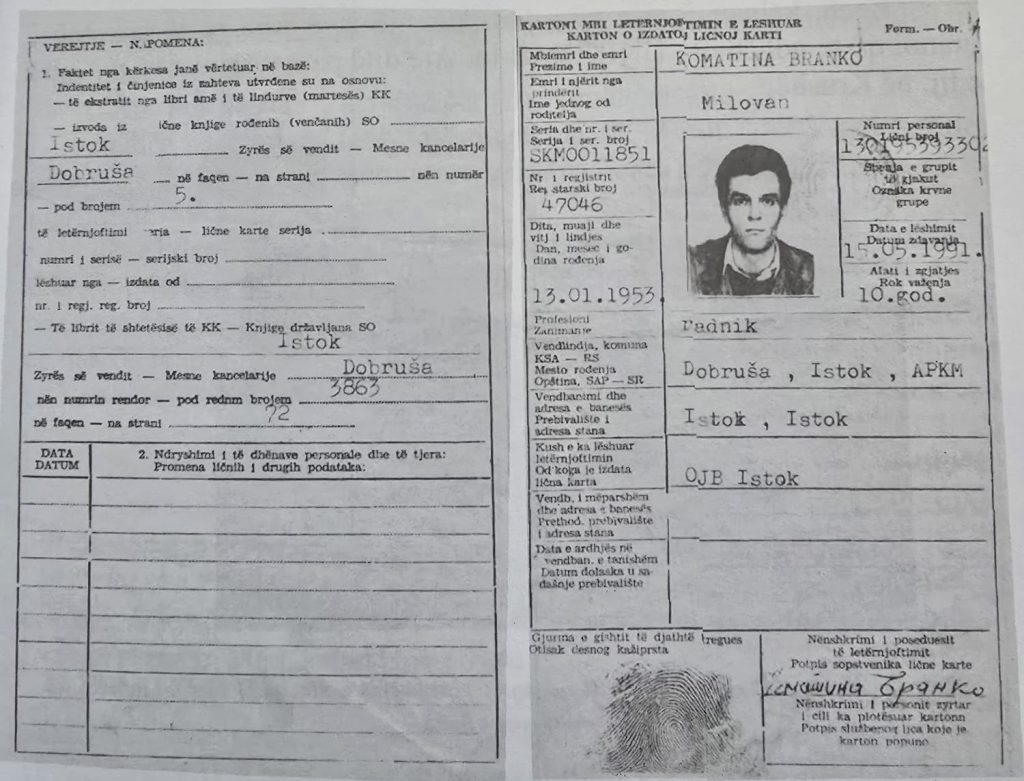 VËREJTJE — NAPOMENA:
1. Faktet nga kërkesa janë vërtetuar në bazë:
Indentitet i činjenice iz zahteva utvrđene su na osnovu:
— të ekstratit nga libri amë i të lindurve (martesës) KK
— izvoda iz ične knjige rođenih (venčanih) SO
Istok Zyrës së vendit — Mesne kancelarije
Dobruša në faqen — na strani nën numër
— pod brojem 5.
të letërnjoftimi eria — lične karte serija
numri i serisë — serijski broj
lëshuar nga — izdata od
nr. i regj. reg. broj
— Të librit të shtetësisë të KK — Knjige državljana SO
Istok
Zyrës së vendit — Mesne kancelarije Dobruša
nën numrin rendor — pod rednm brojem 3863
në faqen — na strani 72
DATA
DATUM
2. Ndryshimi i të dhënave personale dhe të tjera:
Promena ličnih i drugih podataka:
KARTONI MBI LETERNJOFTIMIN E LESHUAR
KARTON O IZDATOJ LIČNOJ KARTI
Form. — Obr.
Mbiemri dhe emri
Prezime i ime
KOMATINA BRANKO
Emri i njërit nga
prindërit
Ime jednog od
roditelja
Milovan
Seria dhe nr. i ser.
Serija i ser. broj
SKM0011851
Nr i regjistrit
Registarski broj
47046
Dita, muaji dhe
vitj i lindjes
Dan, mesec i go-
dina rođenja
13.01.1953.
Numri personal
Lični broj
Shenja e grupit
të gjakut
Oznaka krvne
grupe
Data e lëshimit
Datum izdavanja
15.05.1991.
Afati i zgjatjes
Rok važenja
10.god.
Profesioni
Zanimanje
radnik
Vendlindja, komuna
KSA — RS
Mesto rođenja
Opština, SAP — SR
Dobruša , Istok , APKM
Vendbanimi dhe
adresa e banesës
Prebivalište i
adresa stana
Istok , Istok
Kush e ka lëshuar
letërnjoftimin
Od koga je izdata
lična karta
OJB Istok
Vendb. i mëparshëm
dhe adresa e banesës
Prethod. prebivalište
i adresa stana
Data e ardhjës në
vendban. e tanishëm
Datum dolaska u sa-
dašnje prebivalište
Gjurma e gishtit të djathtë tregues
Otisak desnog kažiprsta
Nënshkrimi i poseduesit
të letërnjoftimit
Potpis sopstvenika lične karte
Бранко
Nënshkrimi i personit zyrtar
i cili ka plotësuar kartonn
Potpis službenog lica koje je
karton popuno